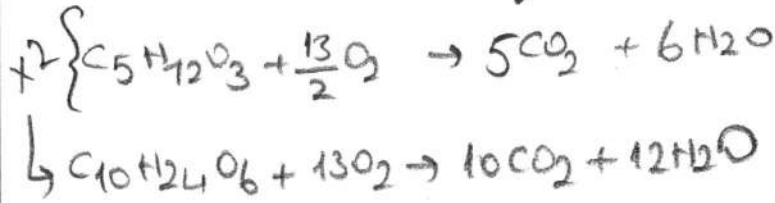 x2 { C5H12O3 + 13/2 O2 → 5CO2 + 6H2O
↳ C10H24O6 + 13O2 → 10CO2 + 12H2O